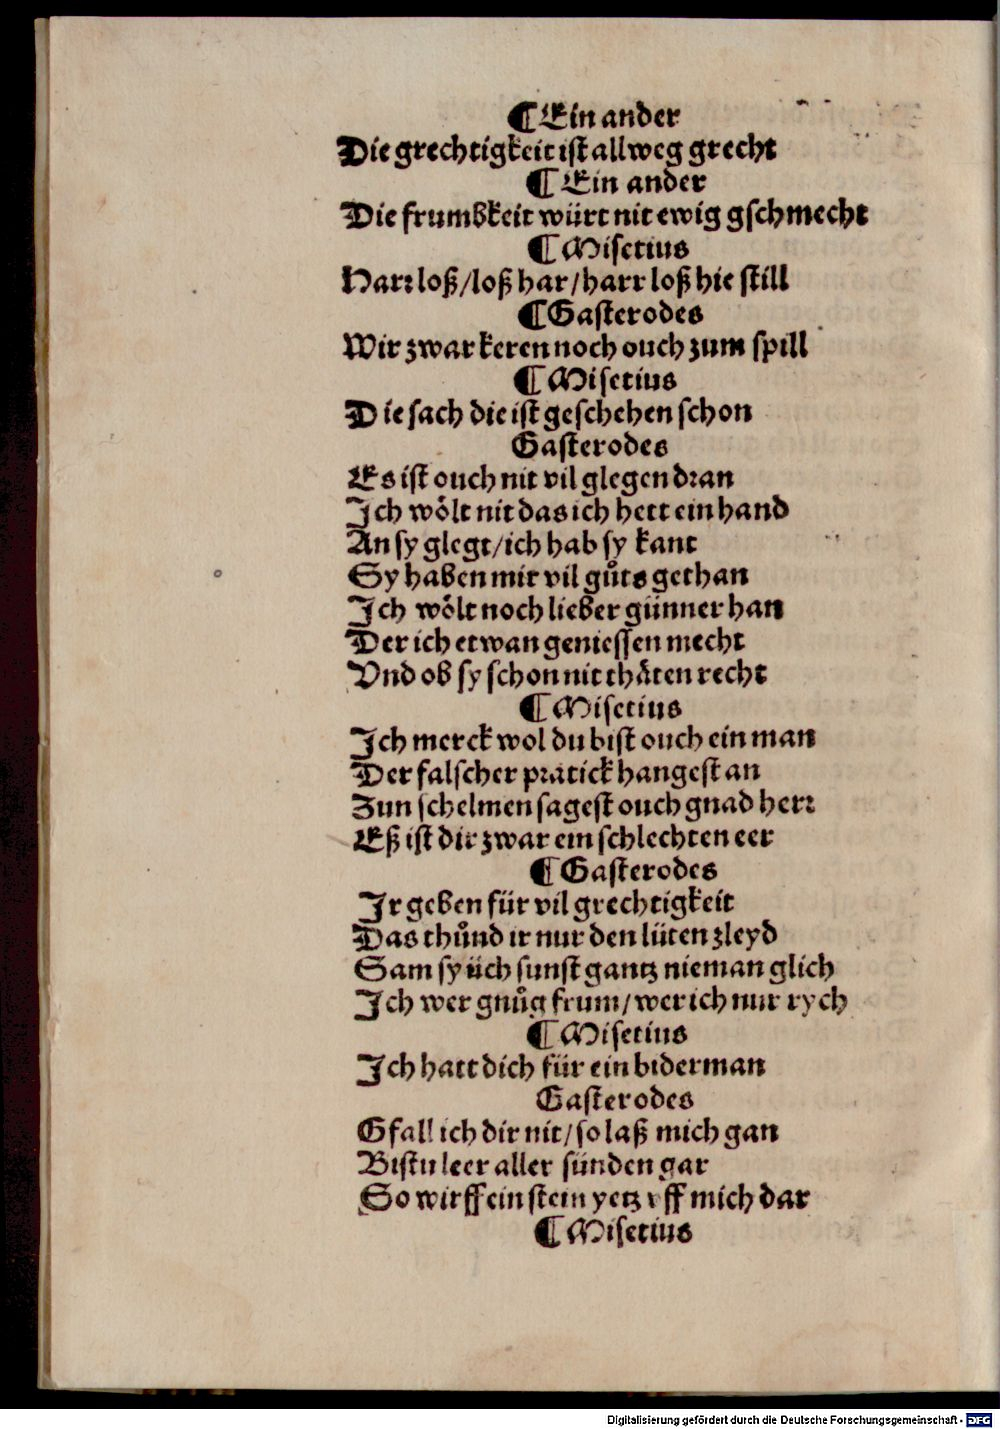 ¶Ein ander
Die grechtigkeit ist allweg grecht
¶Ein ander
Die frumbkeit würt nit ewig gschmecht
¶Misetius
Harꝛ loß/loß har/harr loß hie still
¶Gasterodes
Wir zwar keren noch ouch zum spill
¶Misetius
Die sach die ist geschehen schon
Gasterodes
Es ist ouch nit vil glegen dꝛan
Ich woͤlt nit das ich hett ein hand
An sy glegt/ich hab sy kant
Sy haben mir vil guͦts gethan
Ich woͤlt noch lieber günner han
Der ich etwan geniessen mecht
Vnd ob sy schon nit thaͤten recht
¶Misetius
Ich merck wol du bist ouch ein man
Der falscher pratick hangest an
Zun schelmen sagest ouch gnad herꝛ
Eß ist dir zwar ein schlechten eer
¶Gasterodes
Ir geben für vil grechtigkeit
Das thuͦnd ir nur den lüten zleyd
Sam sy üch sunst gantz nieman glich
Ich wer gnuͦg frum/wer ich nur rych
¶Misetius
Ich hatt dich für ein biderman
Gasterodes
Gfall ich dir nit/so laß mich gan
Bistu leer aller sünden gar
So wirff ein stein yetz vff mich dar
¶Misetius
Digitalisierung gefördert durch die Deutsche Forschungsgemeinschaft - DFG